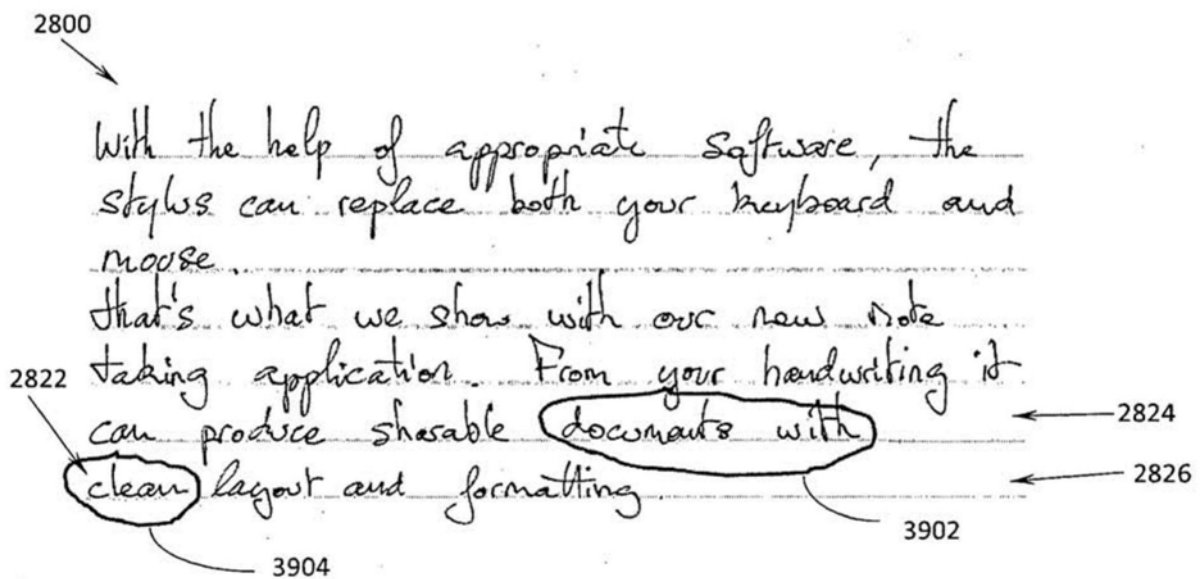 2800
With the help of appropriate software, the
stylus can replace both your keyboard and
mouse.
that's what we show with our new note
taking application. From your handwriting it
2822
can produce sharable documents with
2824
clean layout and formatting.
2826
3902
3904